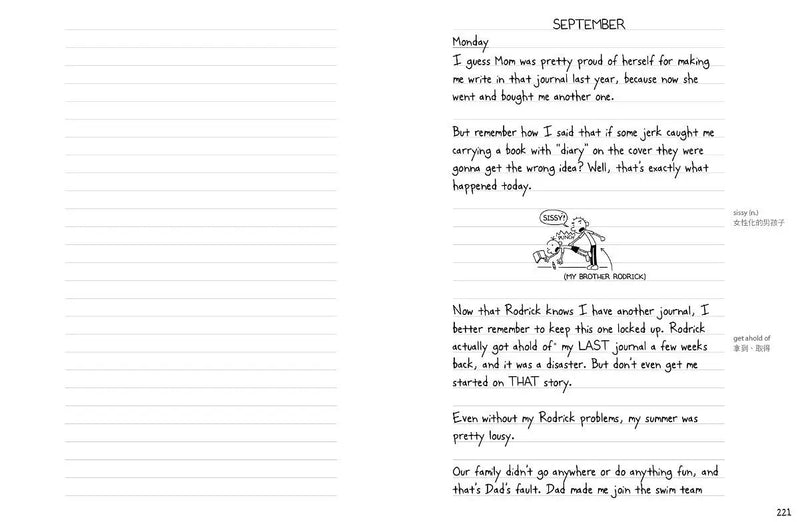 SEPTEMBER
Monday
I guess Mom was pretty proud of herself for making
me write in that journal last year, because now she
went and bought me another one.
But remember how I said that if some jerk caught me
carrying a book with "diary" on the cover they were
gonna get the wrong idea? Well, that's exactly what
happened today.
sissy (n.)
女性化的男孩子
SISSY!
PUNCH
(MY BROTHER RODRICK)
Now that Rodrick knows I have another journal, I
better remember to keep this one locked up. Rodrick
actually got ahold of* my LAST journal a few weeks
back, and it was a disaster. But don't even get me
started on THAT story.
get ahold of
拿到、取得
Even without my Rodrick problems, my summer was
pretty lousy.
Our family didn't go anywhere or do anything fun, and
that's Dad's fault. Dad made me join the swim team
221